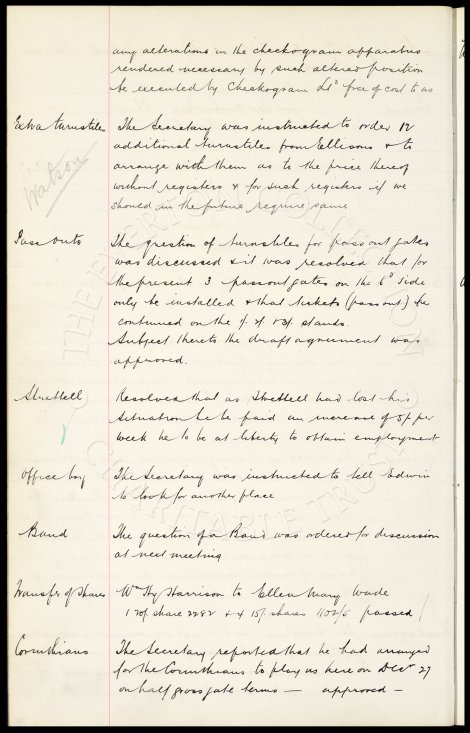 any alterations in the checkogram apparatus
rendered necessary by such altered position
be executed by Checkogram Ld free of cost to us
Extra turnstiles The Secretary was instructed to order 12
additional turnstiles from Ellisons & to
arrange with them as to the price thereof
Watson
without registers & for such registers if we
should in the future require same
Pass outs The question of turnstiles for pass out gates
was discussed & it was resolved that for
the present 3 passout gates on the 6d side
only be installed & that tickets (pass out) be
continued on the & stands.
Subject thereto the draft agreement was
approved.
Strettell Resolved that as Strettell had lost his
situation he be paid an increase of 5/- per
week he to be at liberty to obtain employment
Office boy The Secretary was instructed to tell Edwin
to look for another place
Band The question of a Band was ordered for discussion
at next meeting
Transfer of Shares Wm Hy Harrison to Ellen Mary Wade
1 share 2292 & 4 shares 1102/5 passed
Corinthians The Secretary reported that he had arranged
for the Corinthians to play us here on Decr 27
on half gross gate terms — approved —
THE EVERTON COLLECTION
CHARITABLE TRUST